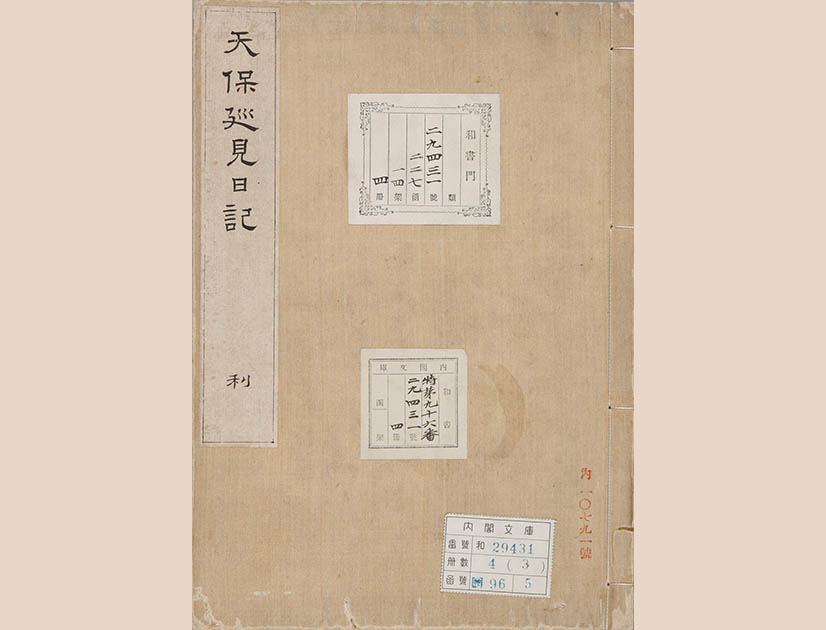 天保廵見日記
利
和書門
類
二九四三一
號
二二七
函
一四
架
四
冊
內閣文庫
和書
特第九十六番
二九四三一
號
四
冊
函
架
內閣文庫
番號 和 29431
冊數 4 ( 3 )
函號 96 5
內一〇七九一號